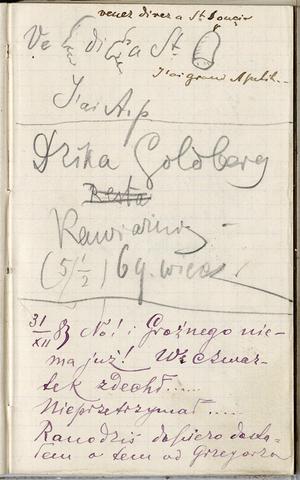 venez diner a St
Ve di a St
J'ai grand Apétit
J'ai A.p
Dzika Goldberg
Resta
Kawiarnia
(5 1/2) 6 g. wiecz.
31/XII 83 No! i Groźnego nie-
ma już! We czwar-
tek zdechł......
Nieprzetrzymał .....
Ranodziś dopiero dosta-
łem o tem od Grzegorza